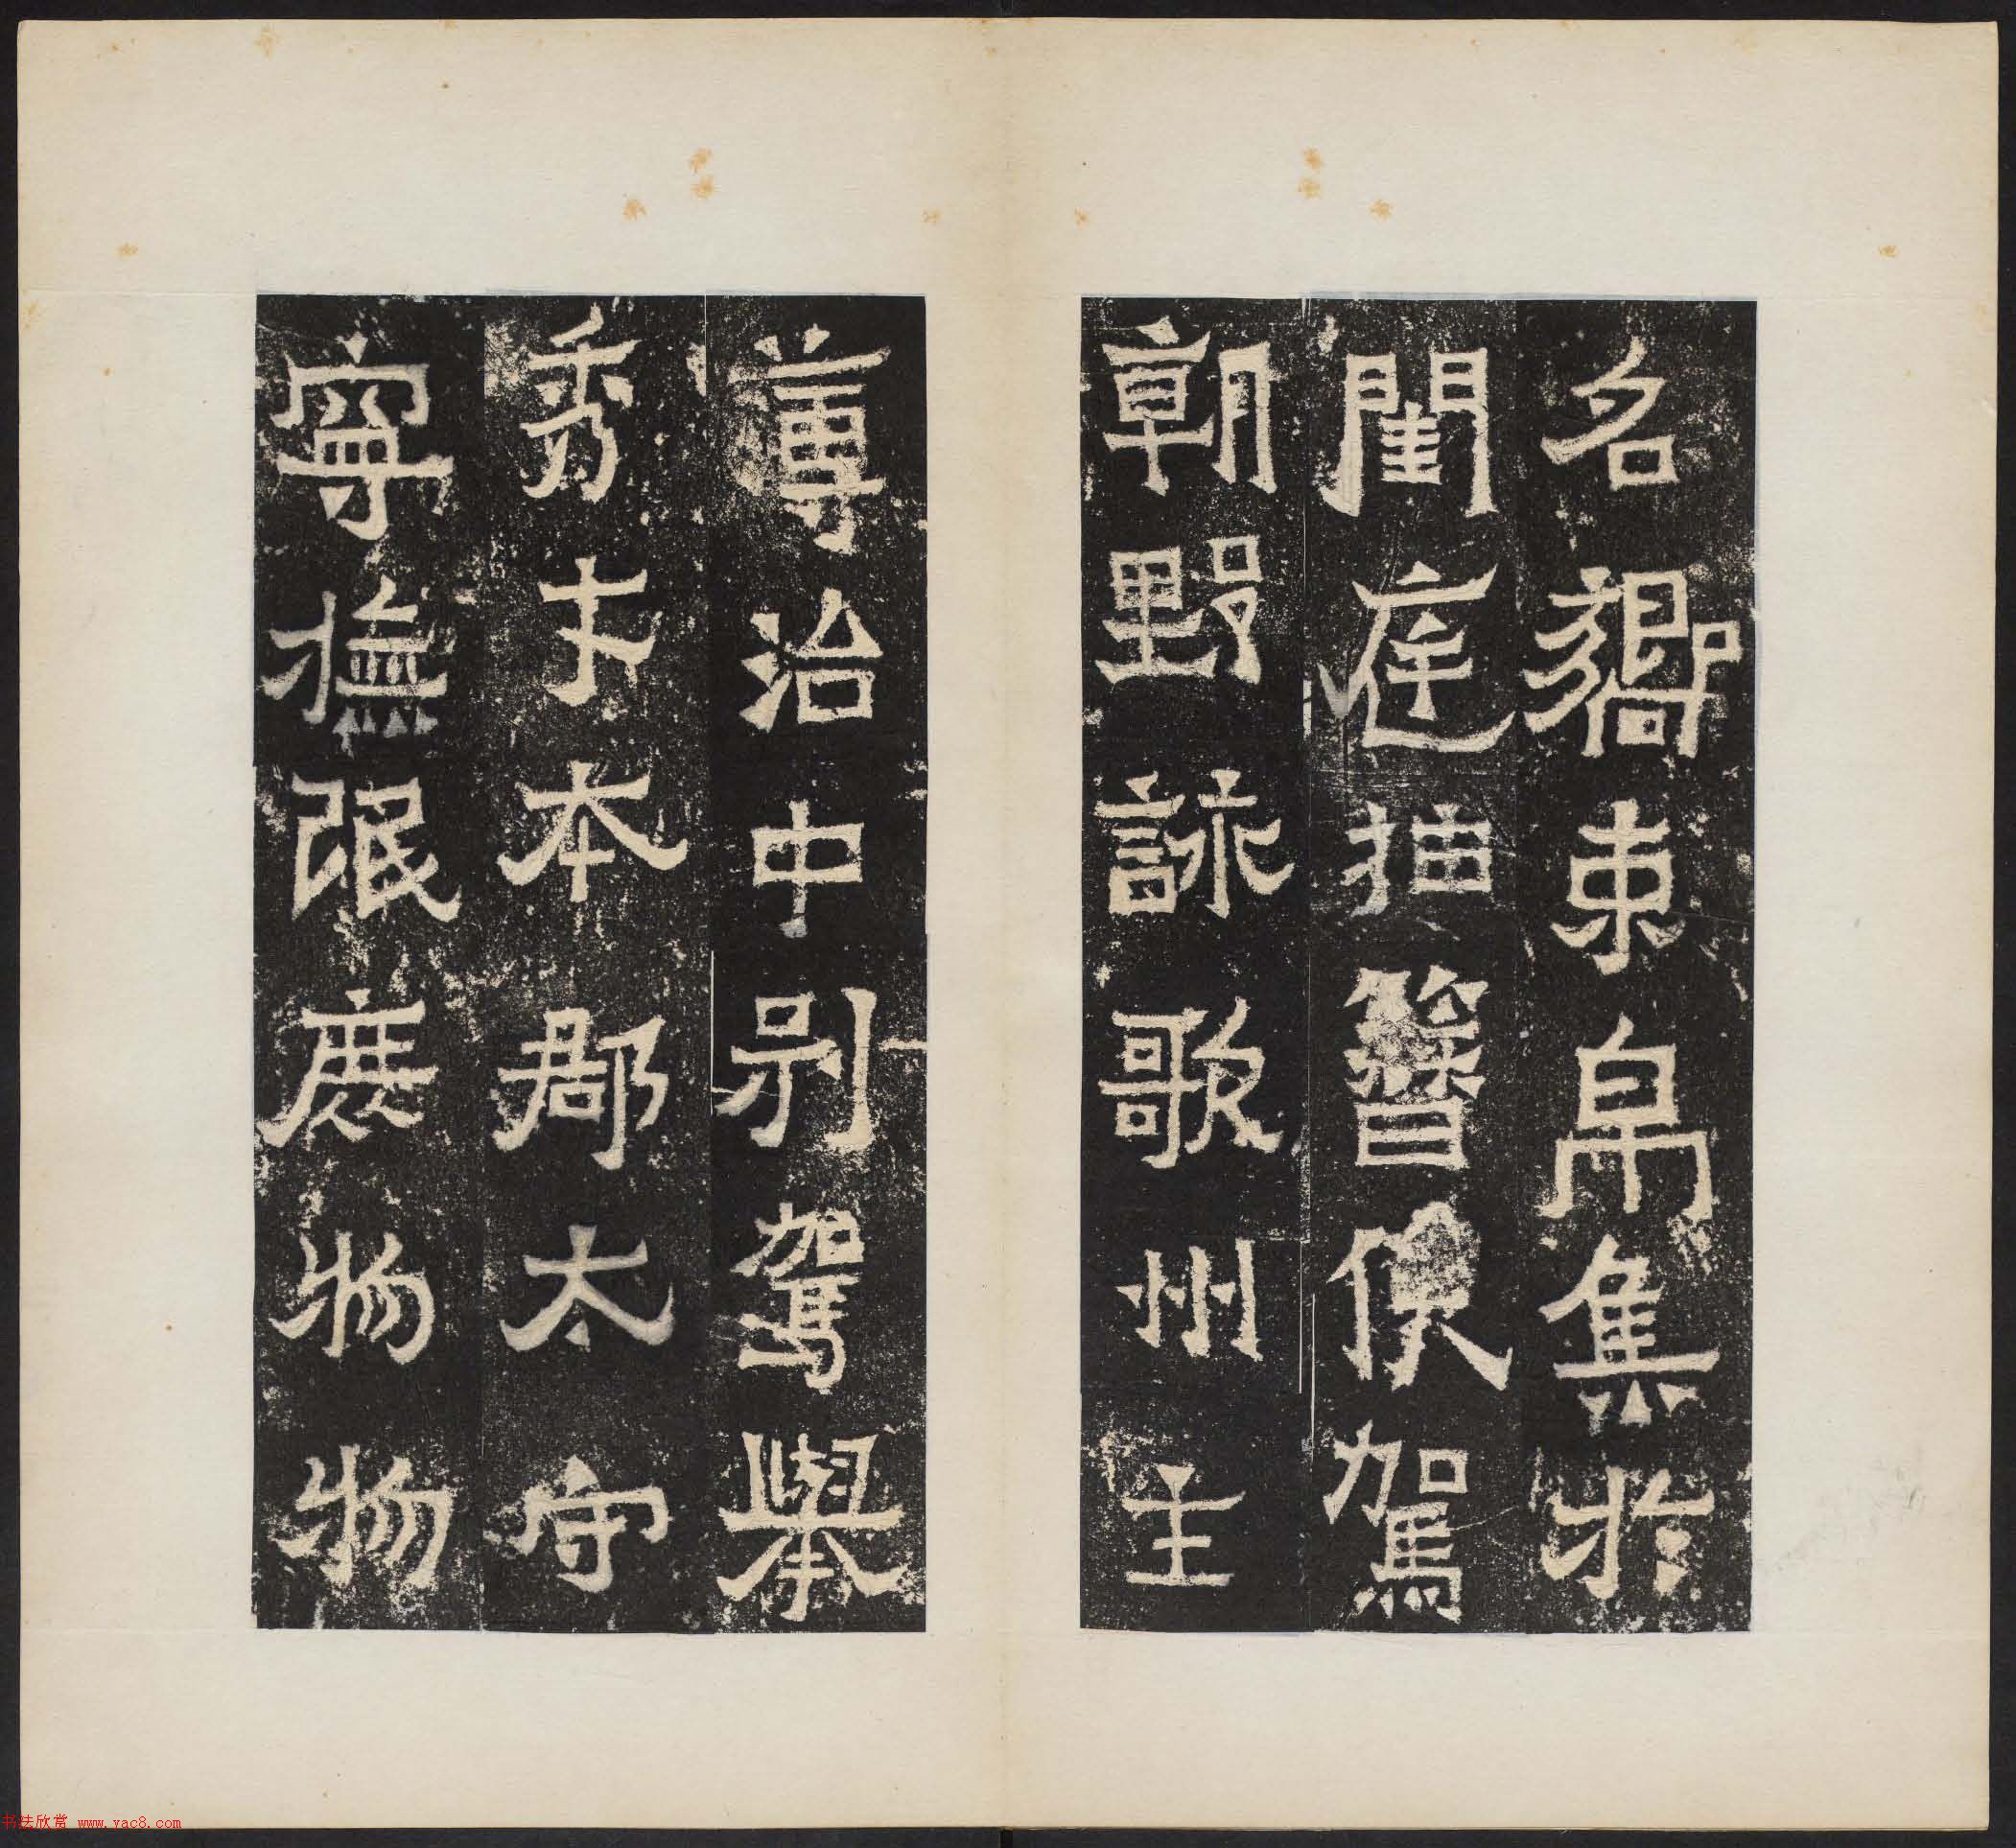 名嚮束帛集於
閨庭抽簪俟駕
朝野詠歌州主
尊治中別駕舉
秀才本郡太守
寧撫氓庶物物
书法欣赏 www.yac8.com